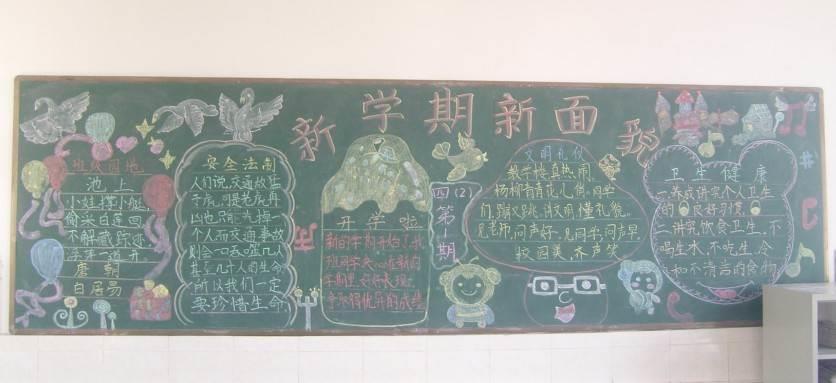 新学期新面貌
班级园地
池上
小娃撑小艇
偷采白莲回
不解藏踪迹
浮萍一道开
唐朝
白居易
安全法制
人们说,交通故猛
于虎,可是老虎再
凶也只能
个人而交通事故
则会一口吞噬几人
甚至几十人的生命
所以我们一定
要珍惜生命
开学啦
新的学期开始了,我
班同学
学期里,好好表现,
争取得优异的成绩
四(2)
第1期
文明礼仪
教学楼真热闹,
杨柳青青花儿俏。同学
们,蹦又跳,讲文明懂礼貌。
见老师,问声好,见同学,问声早,
校园美,齐声笑
卫生健康
一.养成讲究个人卫生
的良好习惯。
二.讲究饮食卫生,不
喝生水,不吃生、冷
和不清洁的食物